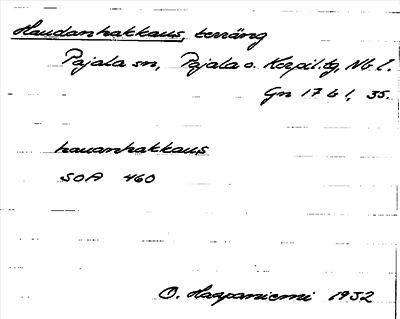 Haudanhakkaus, terräng
Pajala sn, Pajala o. Korpil. tg, Nb. l.
Gn 17 b 1, 35.
hauanhakkaus
SOA 460
O. Haapaniemi 1932